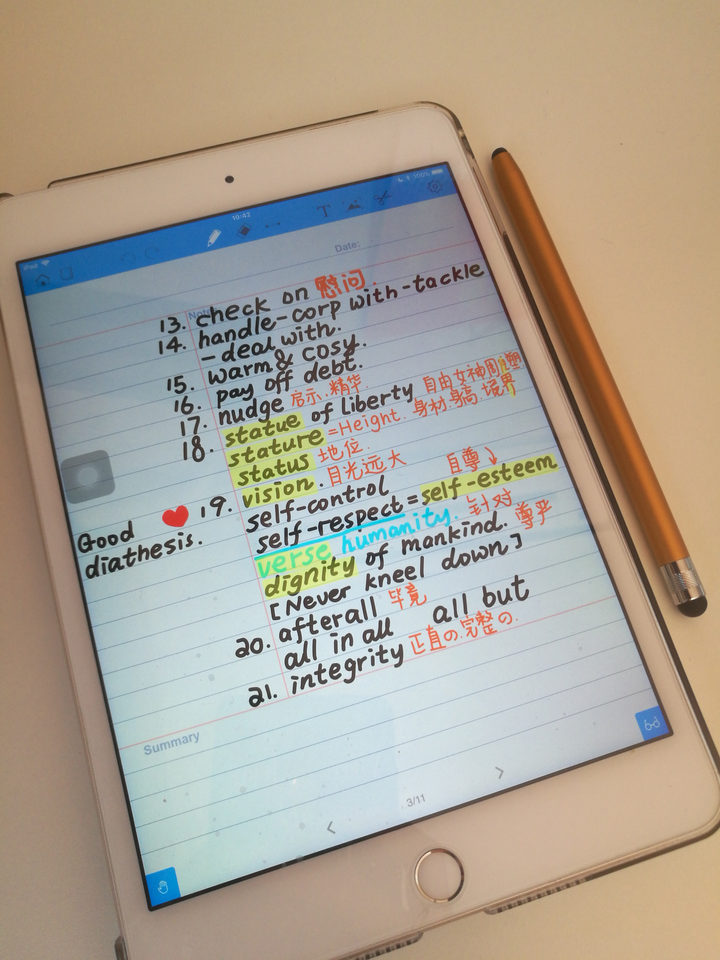 iPad
10:42
100%
T
Date:
Note
13. check on 慰问.
14. handle-corp with-tackle
-deal with.
15. warm & cosy.
16. pay off debt.
17. nudge 启示.精华.
18. statue of Liberty 自由女神周塑
stature =Height. 身材.身高.境界
status 地位.
19. vision. 目光远大
Good diathesis.
self-control 自尊↓
self-respect = self-esteem
verse humanity. 针对
dignity of mankind. 尊严
[Never kneel down]
20. afterall 毕竟
all in all all but
21. integrity 正直の.完整の.
Summary
3/11